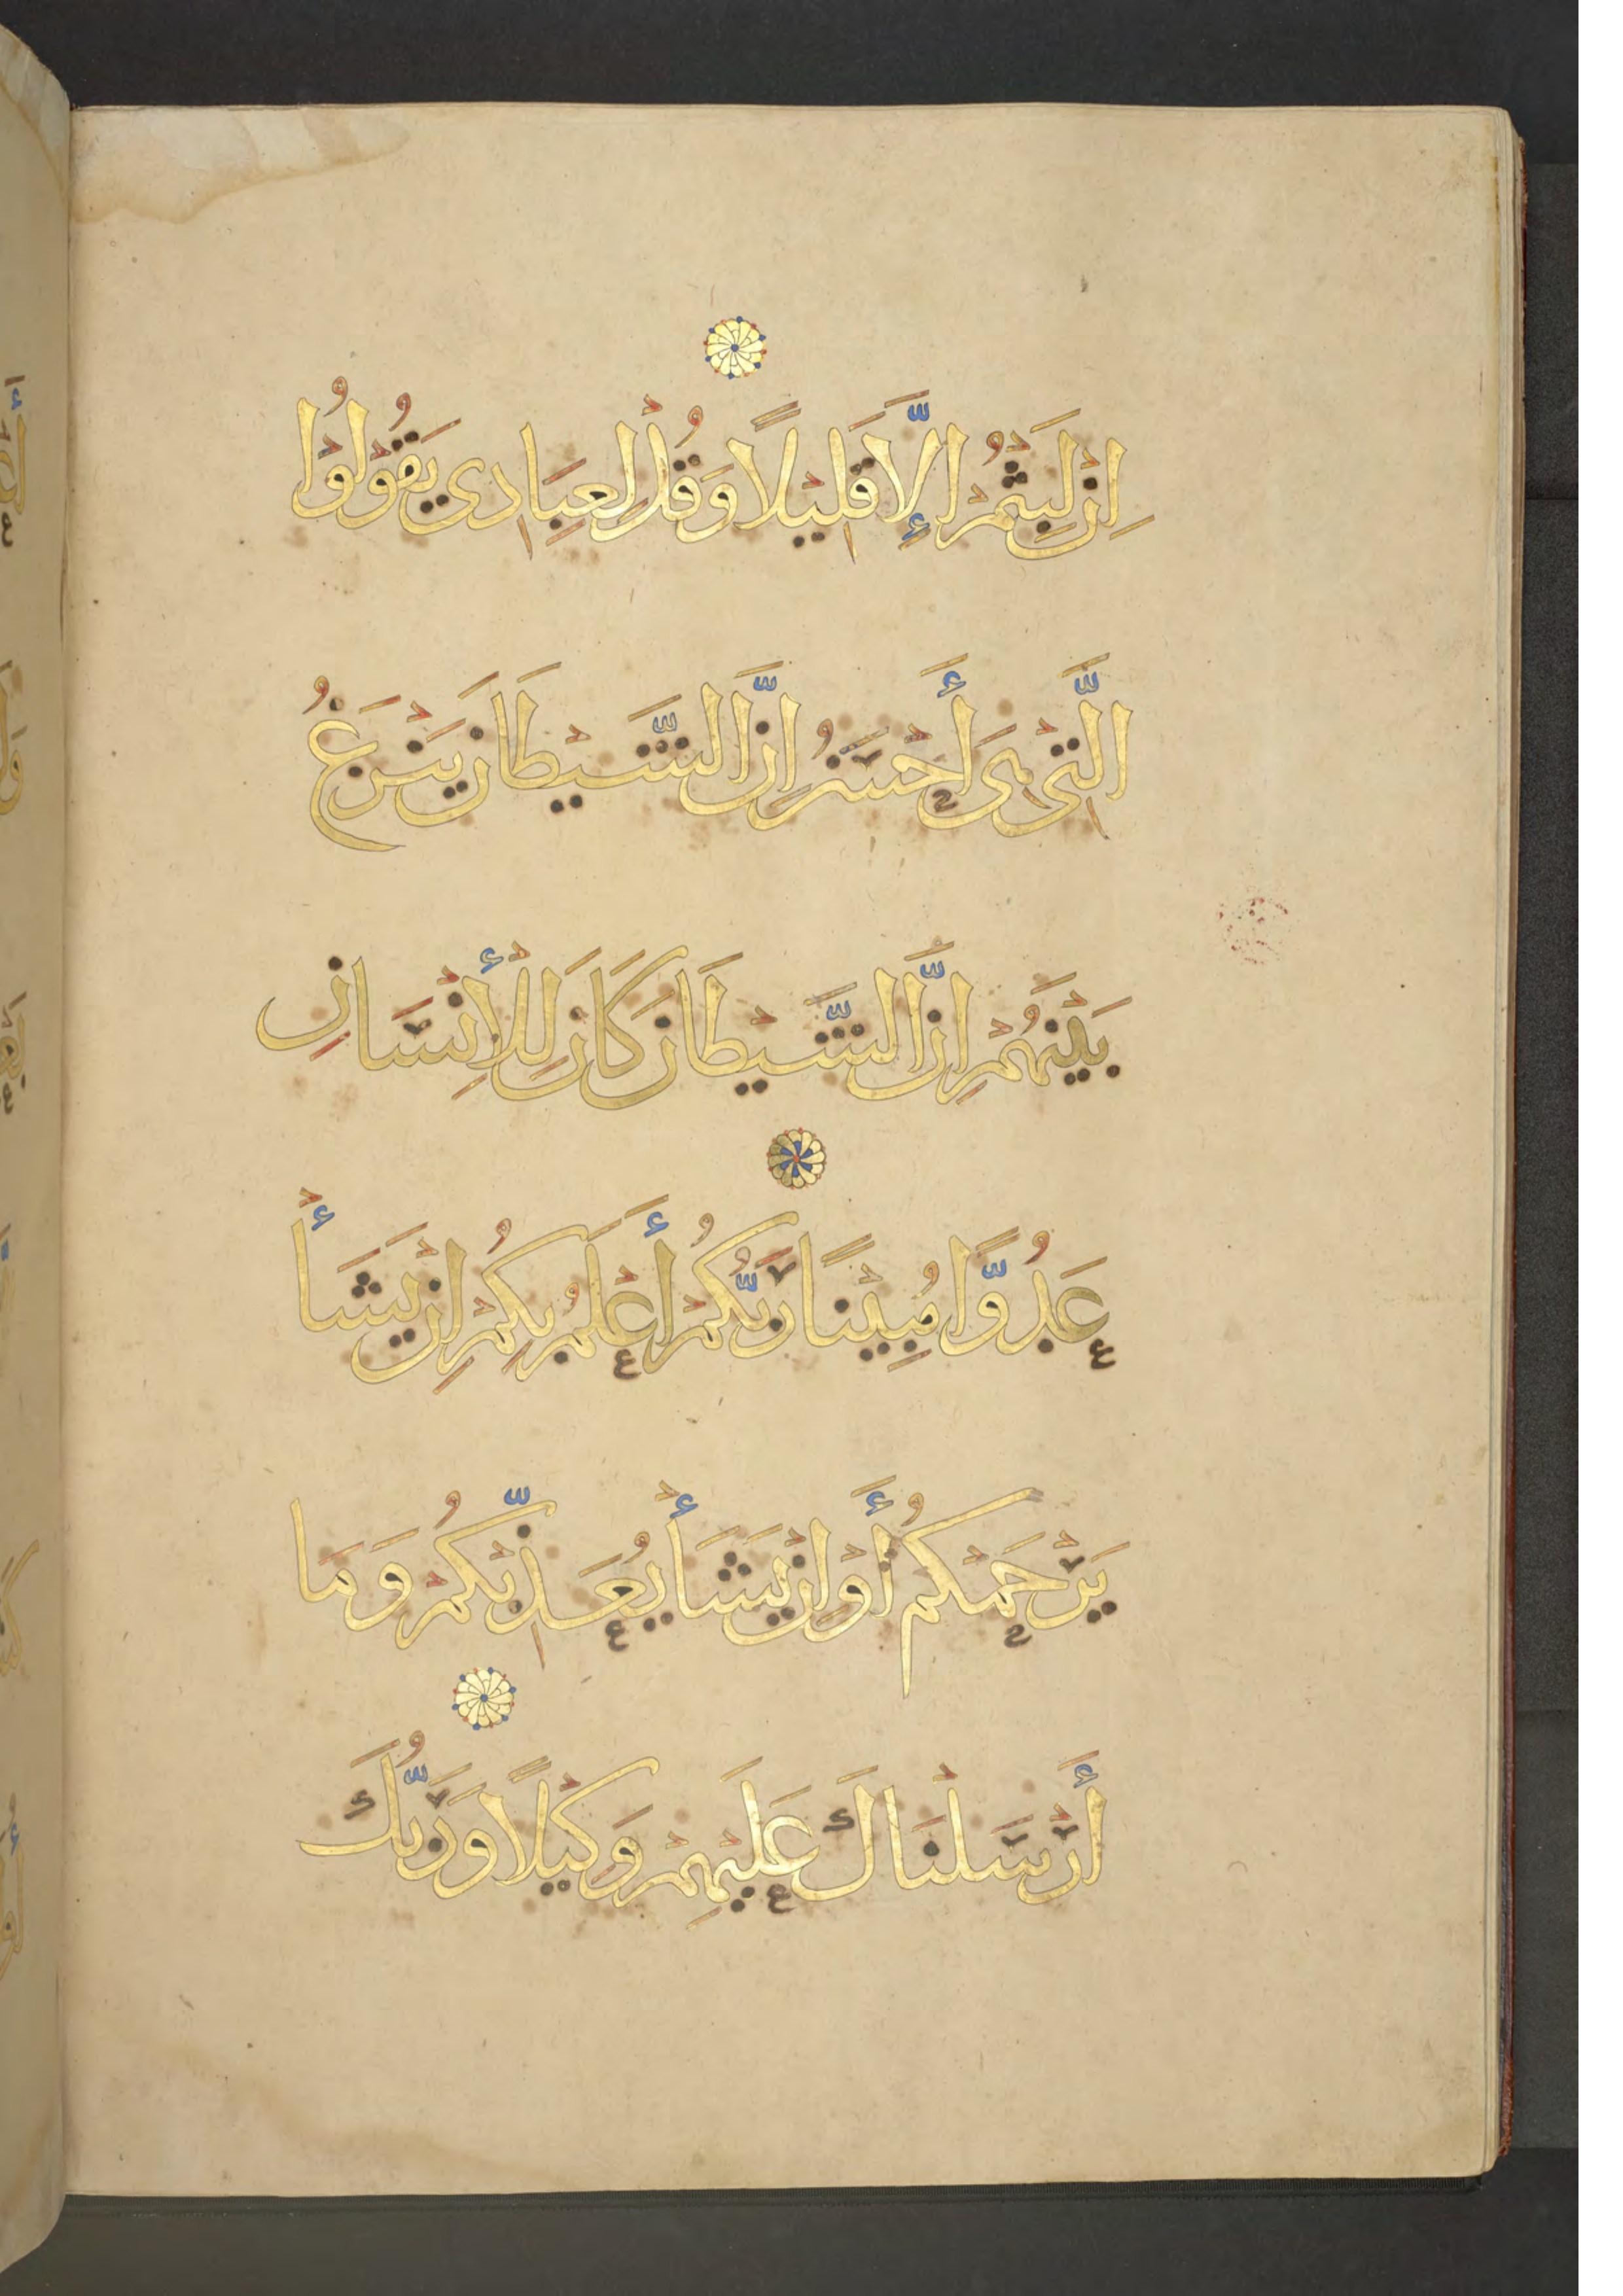 اِنْ لَبِثْتُمْ اِلَّا قَلِيْلًا وَقُلْ لِعِبَادِى يَقُوْلُوْا
الَّتِىْ هِىَ أَحْسَنُ اِنَّ الشَّيْطَانَ يَنْزَغُ
بَيْنَهُمْ اِنَّ الشَّيْطَانَ كَانَ لِلْأِنْسَانِ
عَدُوًّا مُبِيْنًا رَبُّكُمْ أَعْلَمُ بِكُمْ اِنْ يَشَأْ
يَرْحَمْكُمْ أَوْ اِنْ يَشَأْ يُعَذِّبْكُمْ وَمَا
أَرْسَلْنَاكَ عَلَيْهِمْ وَكِيْلًا وَرَبُّكَ